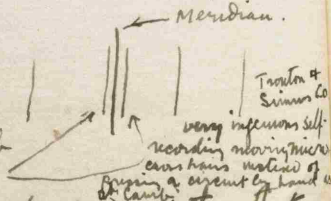 Meridian.
Troughton &
Simms Co
very ingenious self-
recording moving micro
cross hairs instead of
pressing a circuit by hand